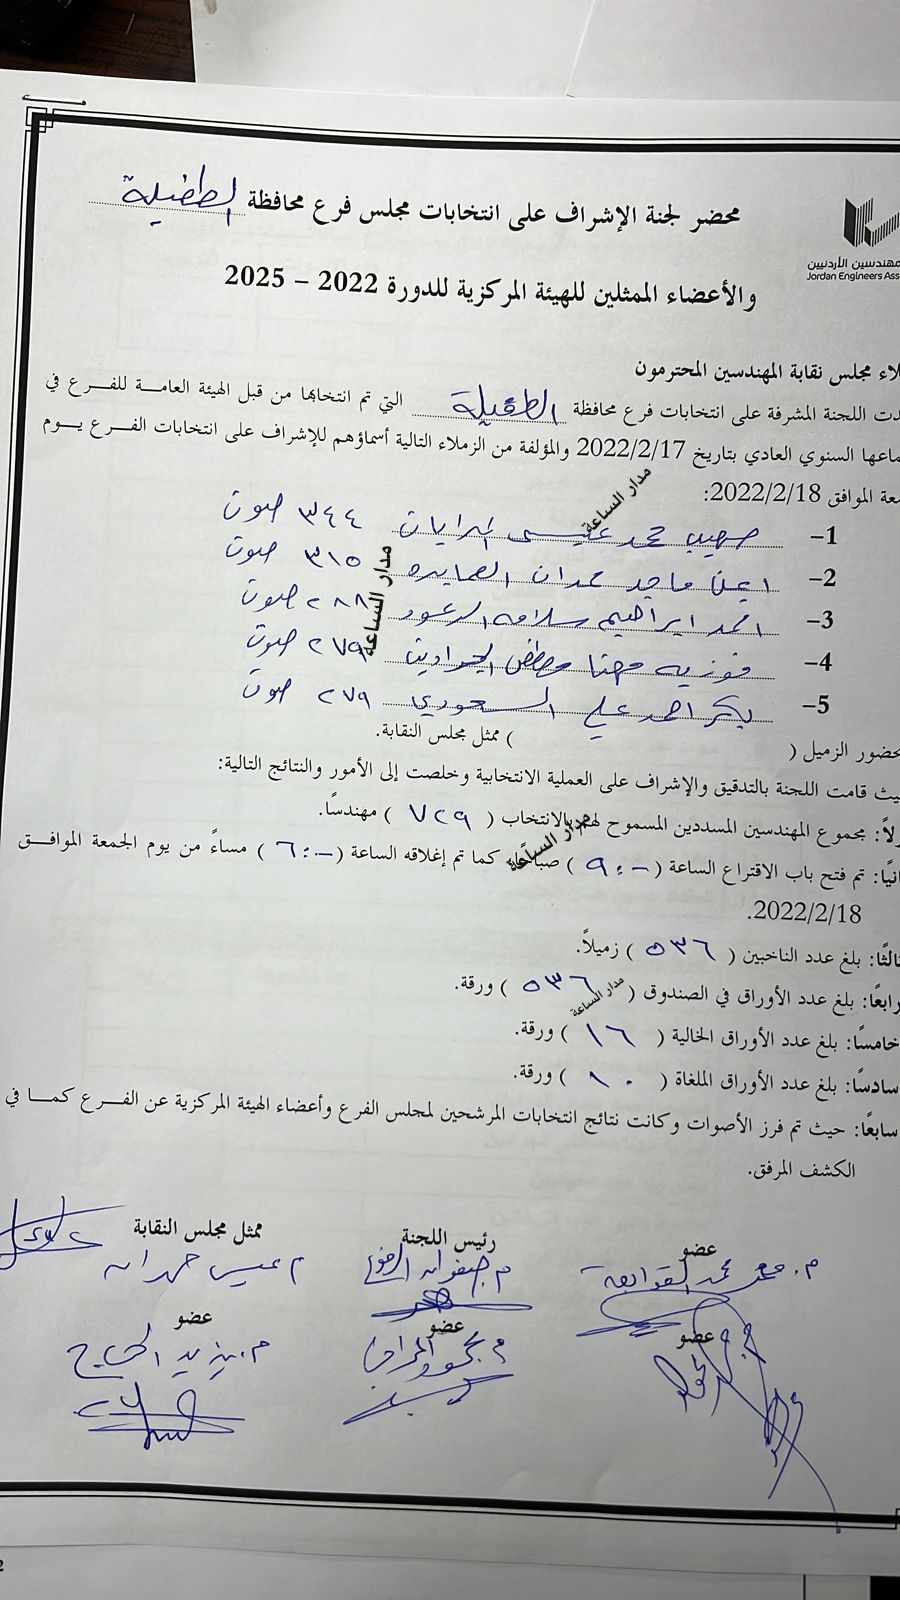 محضر لجنة الإشراف على انتخابات مجلس فرع محافظة الطفيلة
مهندسين الأردنيين
Jordan Engineers Ass
والأعضاء الممثلين للهيئة المركزية للدورة 2022 – 2025
لاء مجلس نقابة المهندسين المحترمون
دت اللجنة المشرفة على انتخابات فرع محافظة الطفيلة التي تم انتخابها من قبل الهيئة العامة للفرع في
ماعها السنوي العادي بتاريخ 2022/2/17 والمؤلفة من الزملاء التالية أسماؤهم للإشراف على انتخابات الفرع يوم
معة الموافق 2022/2/18:
1– صهيب محمد عيسى المرايات ٣٤٤ صوت
2– ماجد حمدان العمايره ٣١٥ صوت
3– احمد ابراهيم سلامه الرعود ٢٨٨ صوت
4– فوزيه مهنا مصطفى الجرادين ٢٧٩ صوت
5– بكر احمد علي السعودي ٢٧٩ صوت
حضور الزميل ( ) ممثل مجلس النقابة.
يث قامت اللجنة بالتدقيق والإشراف على العملية الانتخابية وخلصت إلى الأمور والنتائج التالية:
ولاً: مجموع المهندسين المسددين المسموح لهم بالانتخاب ( ٧٢٩ ) مهندساً.
انيًا: تم فتح باب الاقتراع الساعة ( ٩:– ) صباحًا كما تم إغلاقه الساعة ( ٦:– ) مساءً من يوم الجمعة الموافق
2022/2/18.
الثًا: بلغ عدد الناخبين ( ٥٣٦ ) زميلاً.
رابعًا: بلغ عدد الأوراق في الصندوق ( ٥٣٦ ) ورقة.
خامسًا: بلغ عدد الأوراق الخالية ( ١٦ ) ورقة.
سادسًا: بلغ عدد الأوراق الملغاة ( ١٠ ) ورقة.
سابعًا: حيث تم فرز الأصوات وكانت نتائج انتخابات المرشحين لمجلس الفرع وأعضاء الهيئة المركزية عن الفرع كما في
الكشف المرفق.
مدار الساعة
مدار الساعة
مدار الساعة
مدار الساعة
عضو رئيس اللجنة ممثل مجلس النقابة
م. محمد القوابعة م. صفوان م عيسى حمدان
عضو عضو عضو
م. محمود م. يزيد الحجاج
2